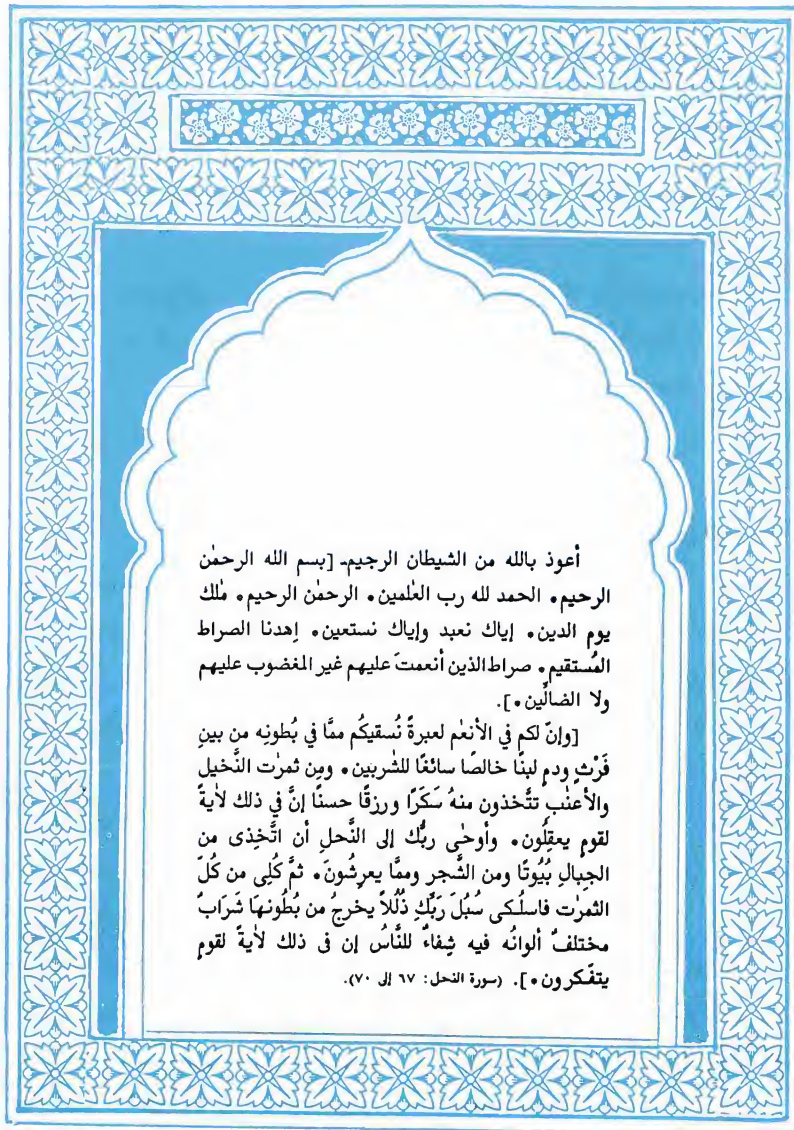 أعوذ بالله من الشيطان الرجيم. [بسم الله الرحمٰن
الرحيم • الحمد لله رب العٰلمين • الرحمٰن الرحيم • مٰلك
يوم الدين • إياك نعبد وإياك نستعين • اِهدنا الصراط
المُستقيم • صراط الذين أنعمتَ عليهم غير المغضوب عليهم
ولا الضالّين •].
[وإنّ لكم في الأنعٰم لعبرةً نُسقيكُم ممَّا في بُطونِه من بينِ
فَرْثٍ ودمٍ لبنًا خالصًا سائغًا للشٰربين • ومِن ثمرٰت النَّخيل
والأعنٰب تتَّخذون منهُ سَكَرًا ورزقًا حسنًا إنَّ في ذلك لأيةً
لقومٍ يعقِلُون • وأوحٰى ربُّك إلى النَّحلِ أن اتَّخِذى من
الجِبالِ بُيُوتًا ومن الشَّجر وممَّا يعرِشُونَ • ثمَّ كُلِى من كُلّ
الثمرٰت فاسلُكى سُبُلَ رَبِّكِ ذُلُلاً يخرجُ من بُطونهَا شَرَابٌ
مختلفٌ ألوانُه فيه شِفاءٌ للنَّاسُ إن فى ذلك لأيةً لقومٍ
يتفّكرون •]. (سورة النحل: ٦٧ إلى ٧٠).